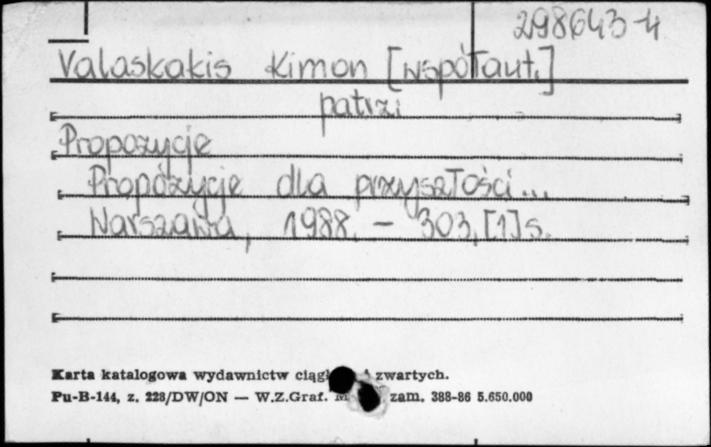 298643-4
Valaskakis Kimon [współaut.]
patrzi
Propozycje
Propozycje dla przyszłości...
Warszawa, 1988. - 303, [1] s.
Karta katalogowa wydawnictw zwartych.
Pu-B-144, z. 228/DW/ON — W.Z.Graf. zam. 388-86 5.650.000